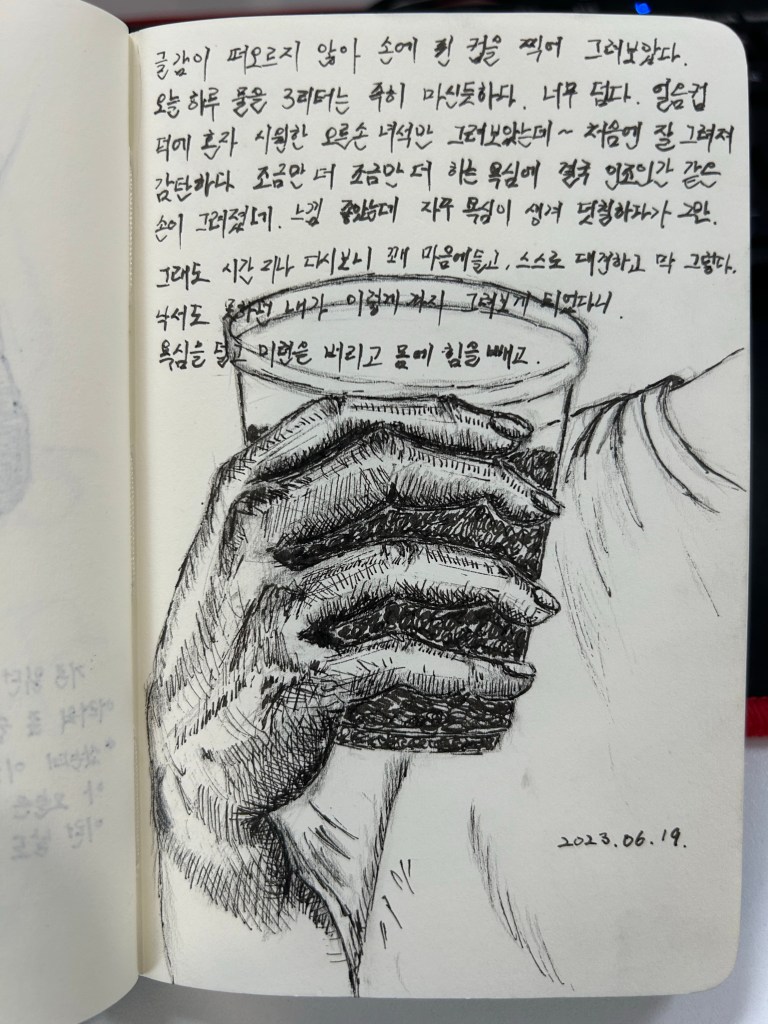 글감이 떠오르지 않아 손에 쥔 컵을 찍어 그려보았다.
오늘 하루 물을 3리터는 족히 마신듯하다. 너무 덥다. 얼음컵
덕에 혼자 시원한 오른손 녀석만 그려보았는데~ 처음엔 잘 그려져
감탄하다 조금만 더 조금만 더 하는 욕심에 결국 인조인간 같은
손이 그려졌네. 느낌 좋았는데 자꾸 욕심이 생겨 덧칠하다가 그만.
그래도 시간 지나 다시보니 꽤 마음에들고, 스스로 대견하고 막 그렇다.
낙서도 못하던 내가 이렇게 까지 그려보게 되었다니.
욕심을 덜고 미련을 버리고 몸에 힘을 빼고.
2023.06.19.